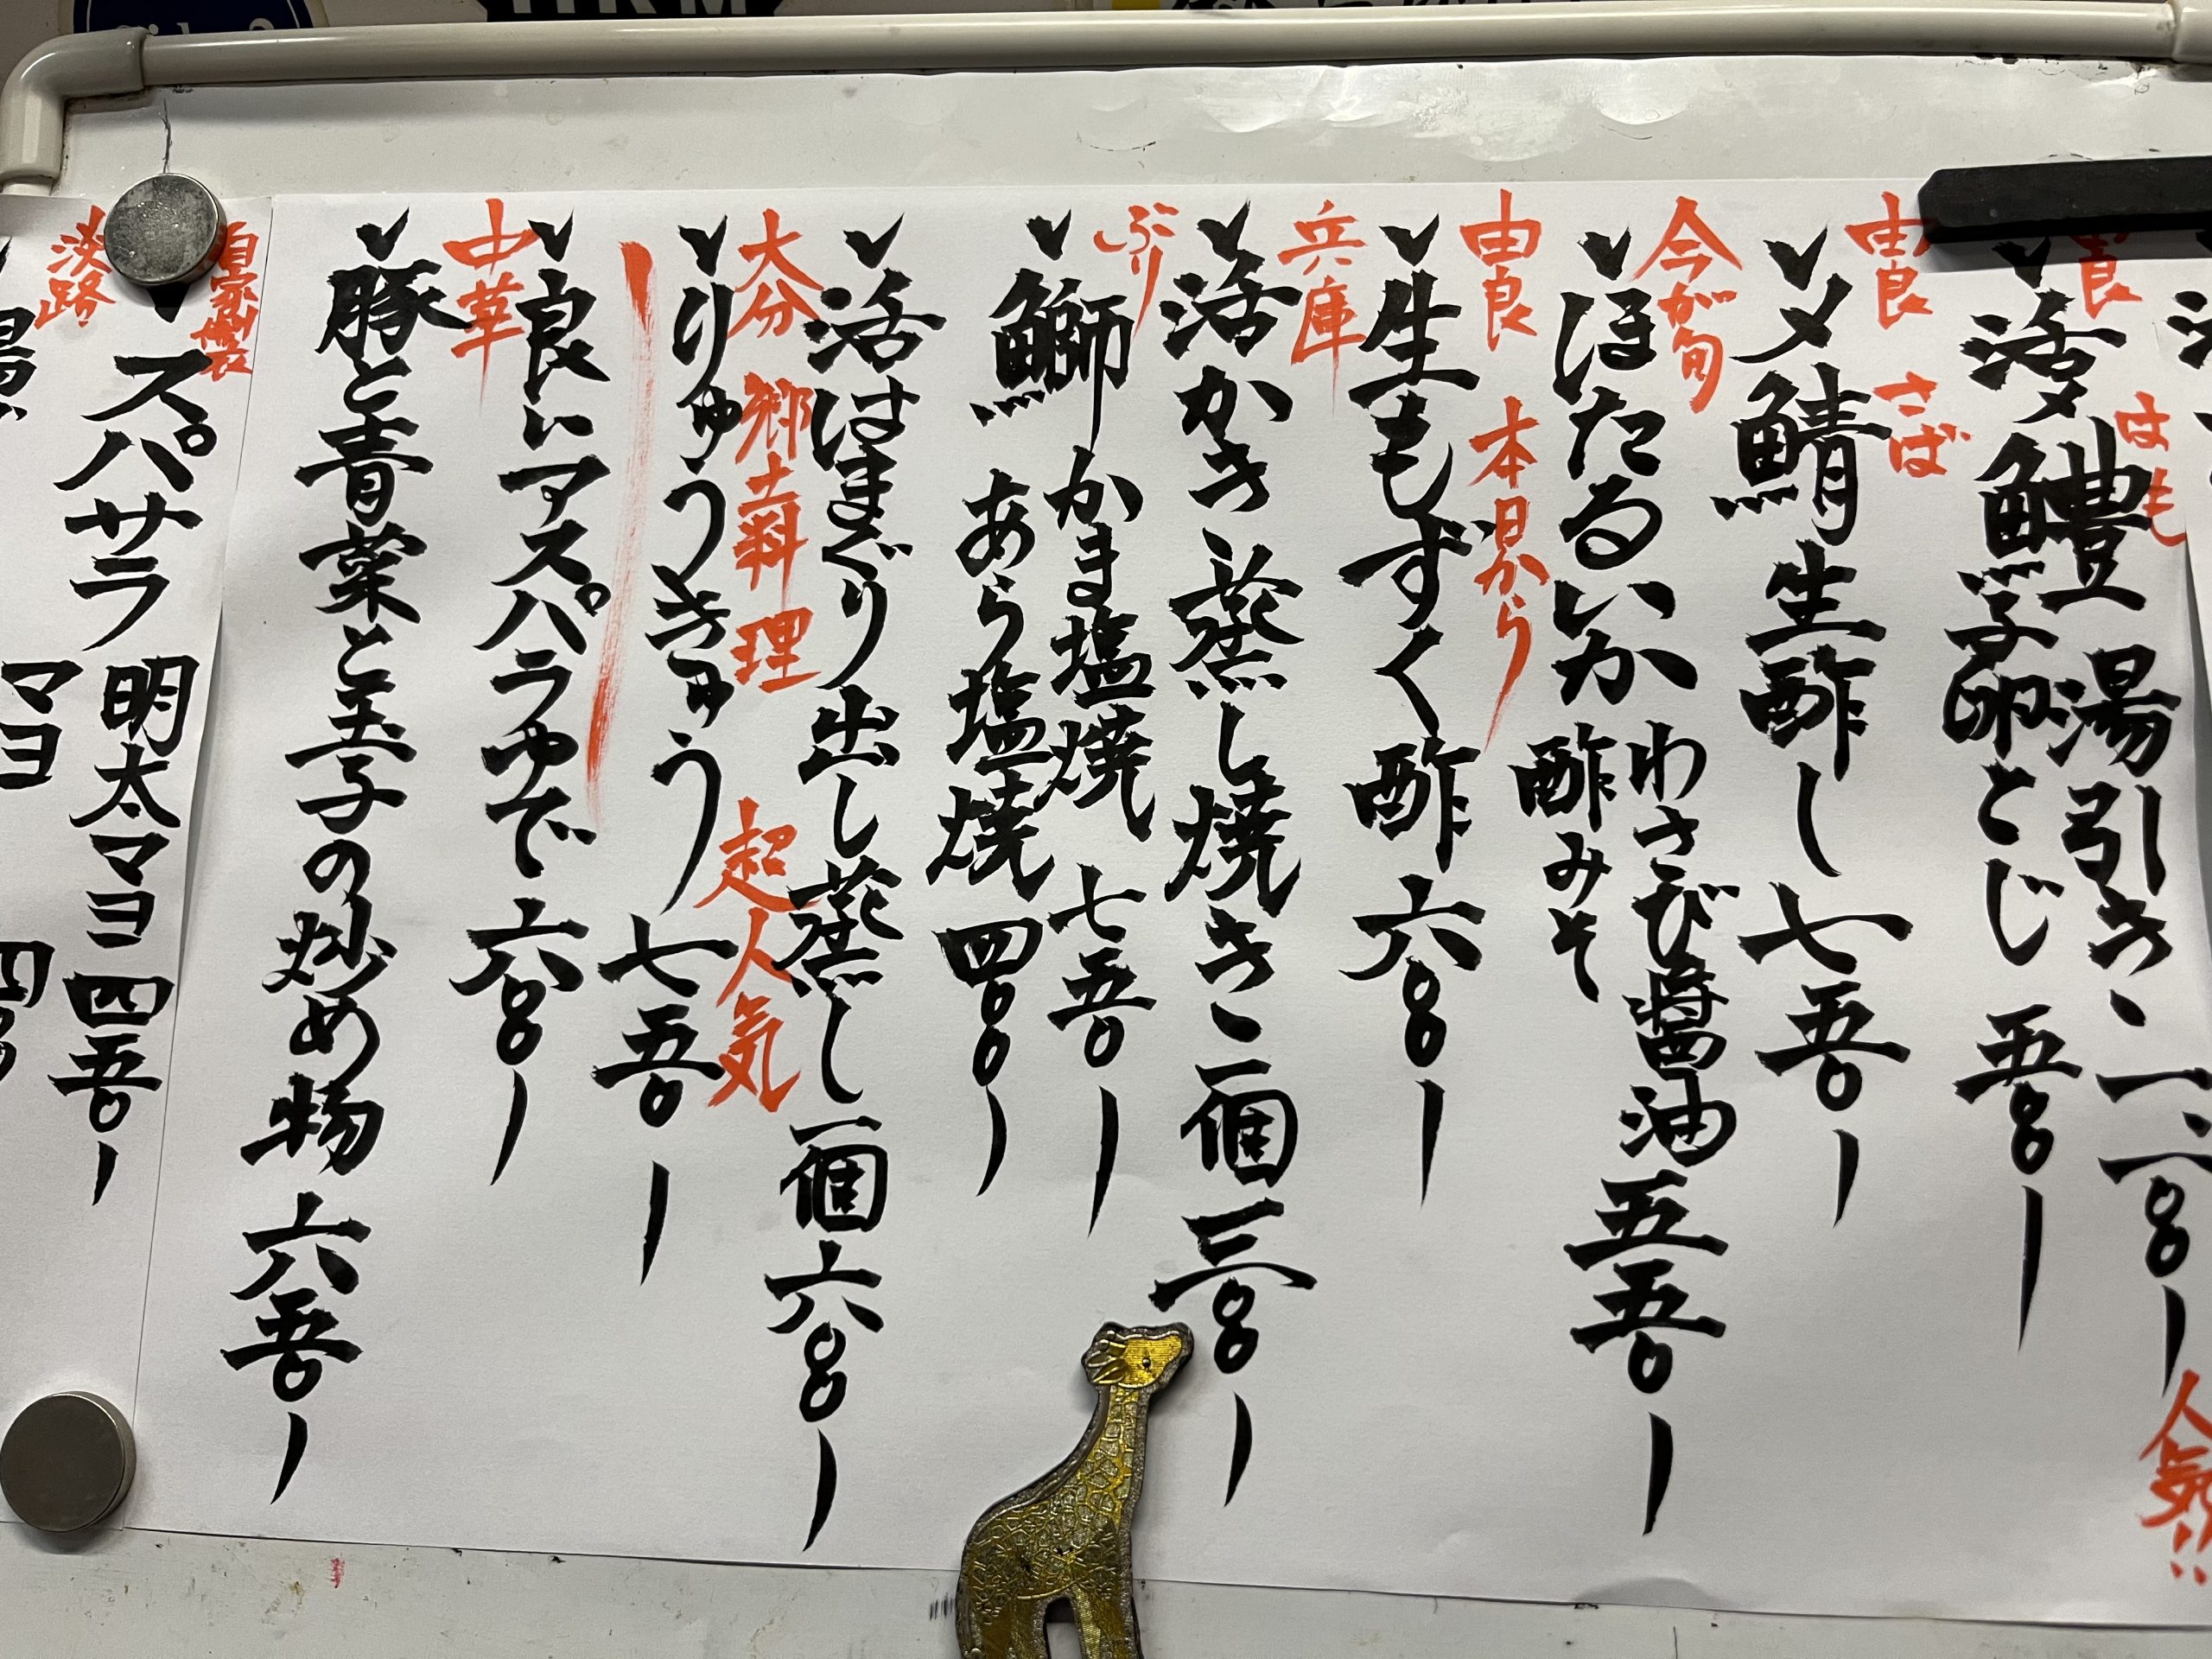 由良
はも
活〆鱧 湯引き 一、二〇〇ー
人気!!
子卵とじ 五〇〇ー
由良
さば
〆鯖生酢し 七五〇ー
今が旬
ほたるいか わさび醤油 五五〇ー
酢みそ
由良
本日から
生もずく酢 六〇〇ー
兵庫
活かき 蒸し 焼き 一個 三〇〇ー
ぶり
鰤 かま塩焼 七五〇ー
あら塩焼 四〇〇ー
活はまぐり出し蒸し 一個 六〇〇ー
大分 郷土料理 超人気
りゅうきゅう 七五〇ー
良いアスパラゆで 六〇〇ー
中華
豚と青菜と玉子の炒め物 六五〇ー
自家製
スパサラ 明太マヨ 四五〇ー
淡路
マヨ